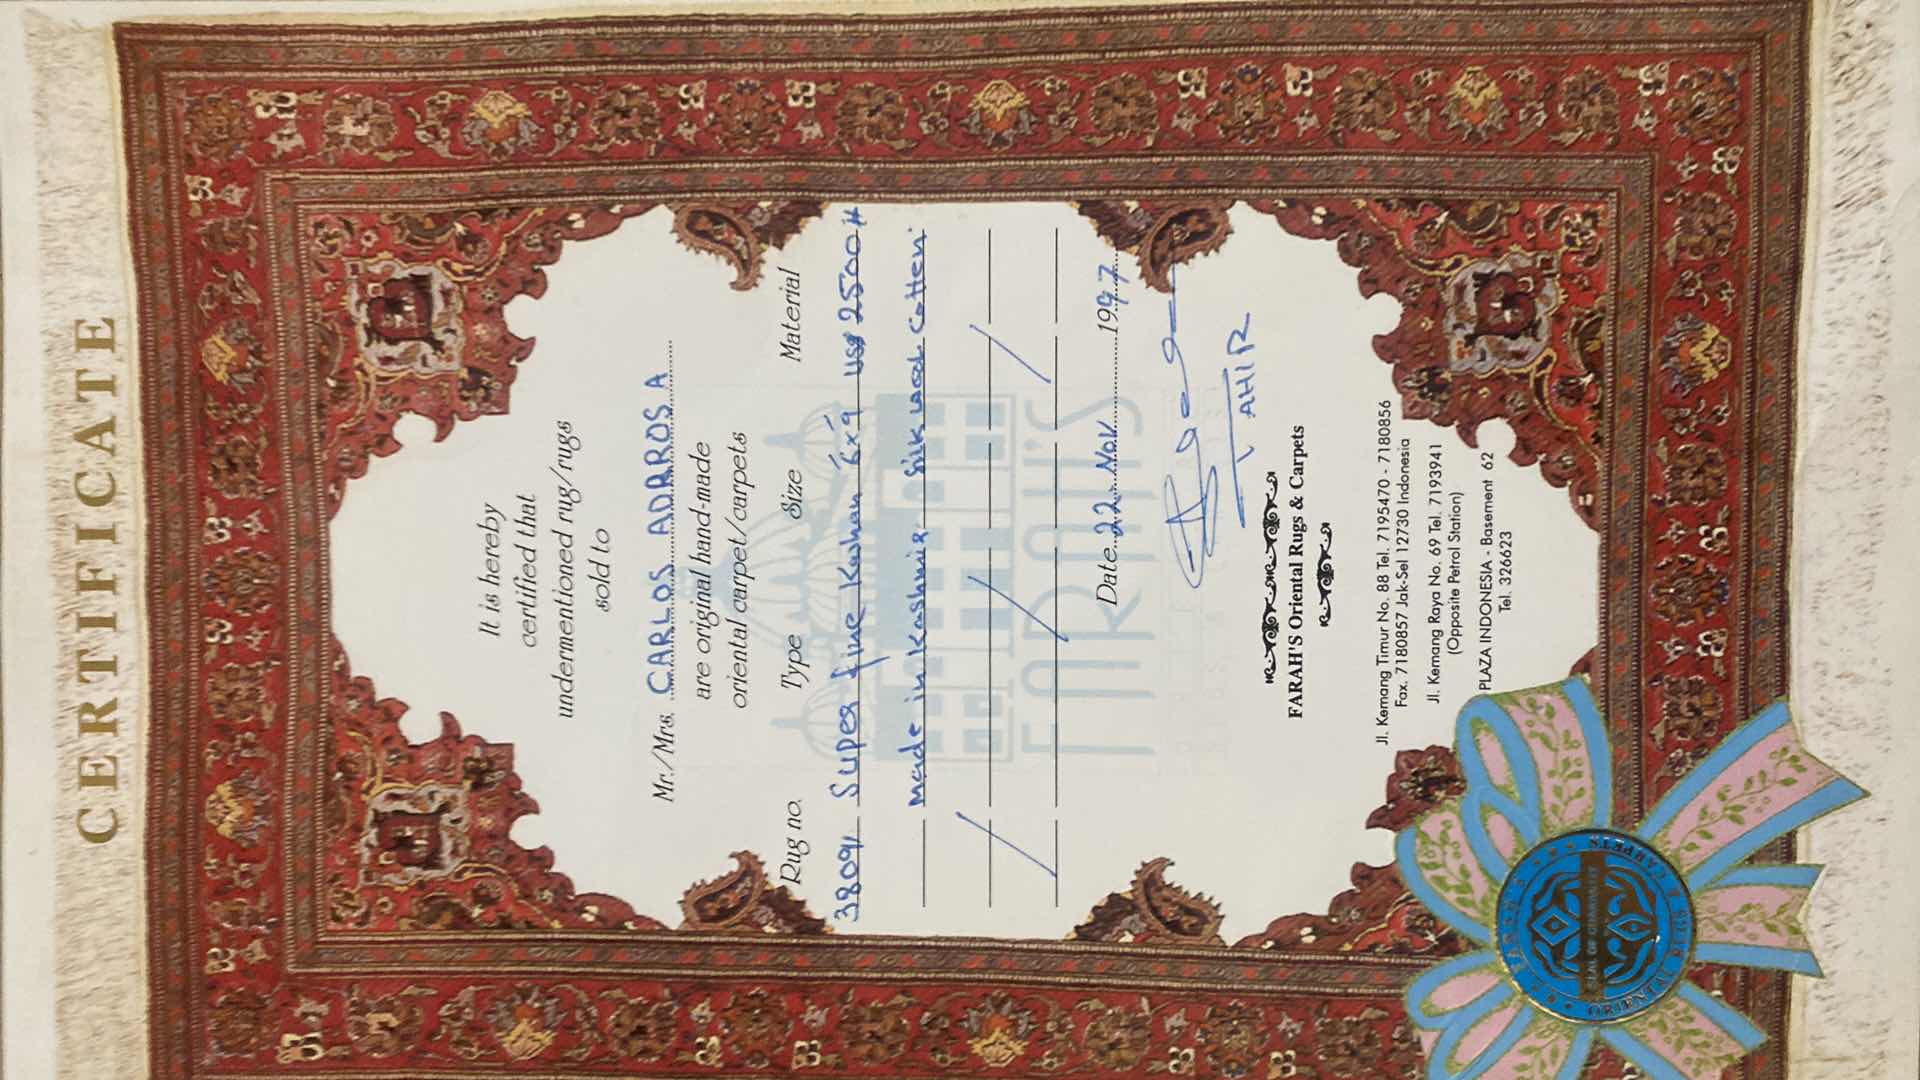 CERTIFICATE
It is hereby
certified that
undermentioned rug/rugs
sold to
Mr./Mrs. CARLOS ADRROSA
are original hand-made
oriental carpet/carpets
Rug no. Type Size Material
38091 Super fine Kashan 6'x9' US$ 2500 #
Made in Kashmir Silk wool Cotten
FARAH'S
Date 22. Nov 1997
TAHIR
FARAH'S Oriental Rugs & Carpets
Jl. Kemang Timur No. 88 Tel. 7195470 - 7180856
Fax. 7180857 Jak-Sel 12730 Indonesia
Jl. Kemang Raya No. 69 Tel. 7193941
(Opposite Petrol Station)
PLAZA INDONESIA - Basement 62
Tel. 326623
FARAH'S
SEAL OF GUARANTEE
ORIENTAL RUGS & CARPETS